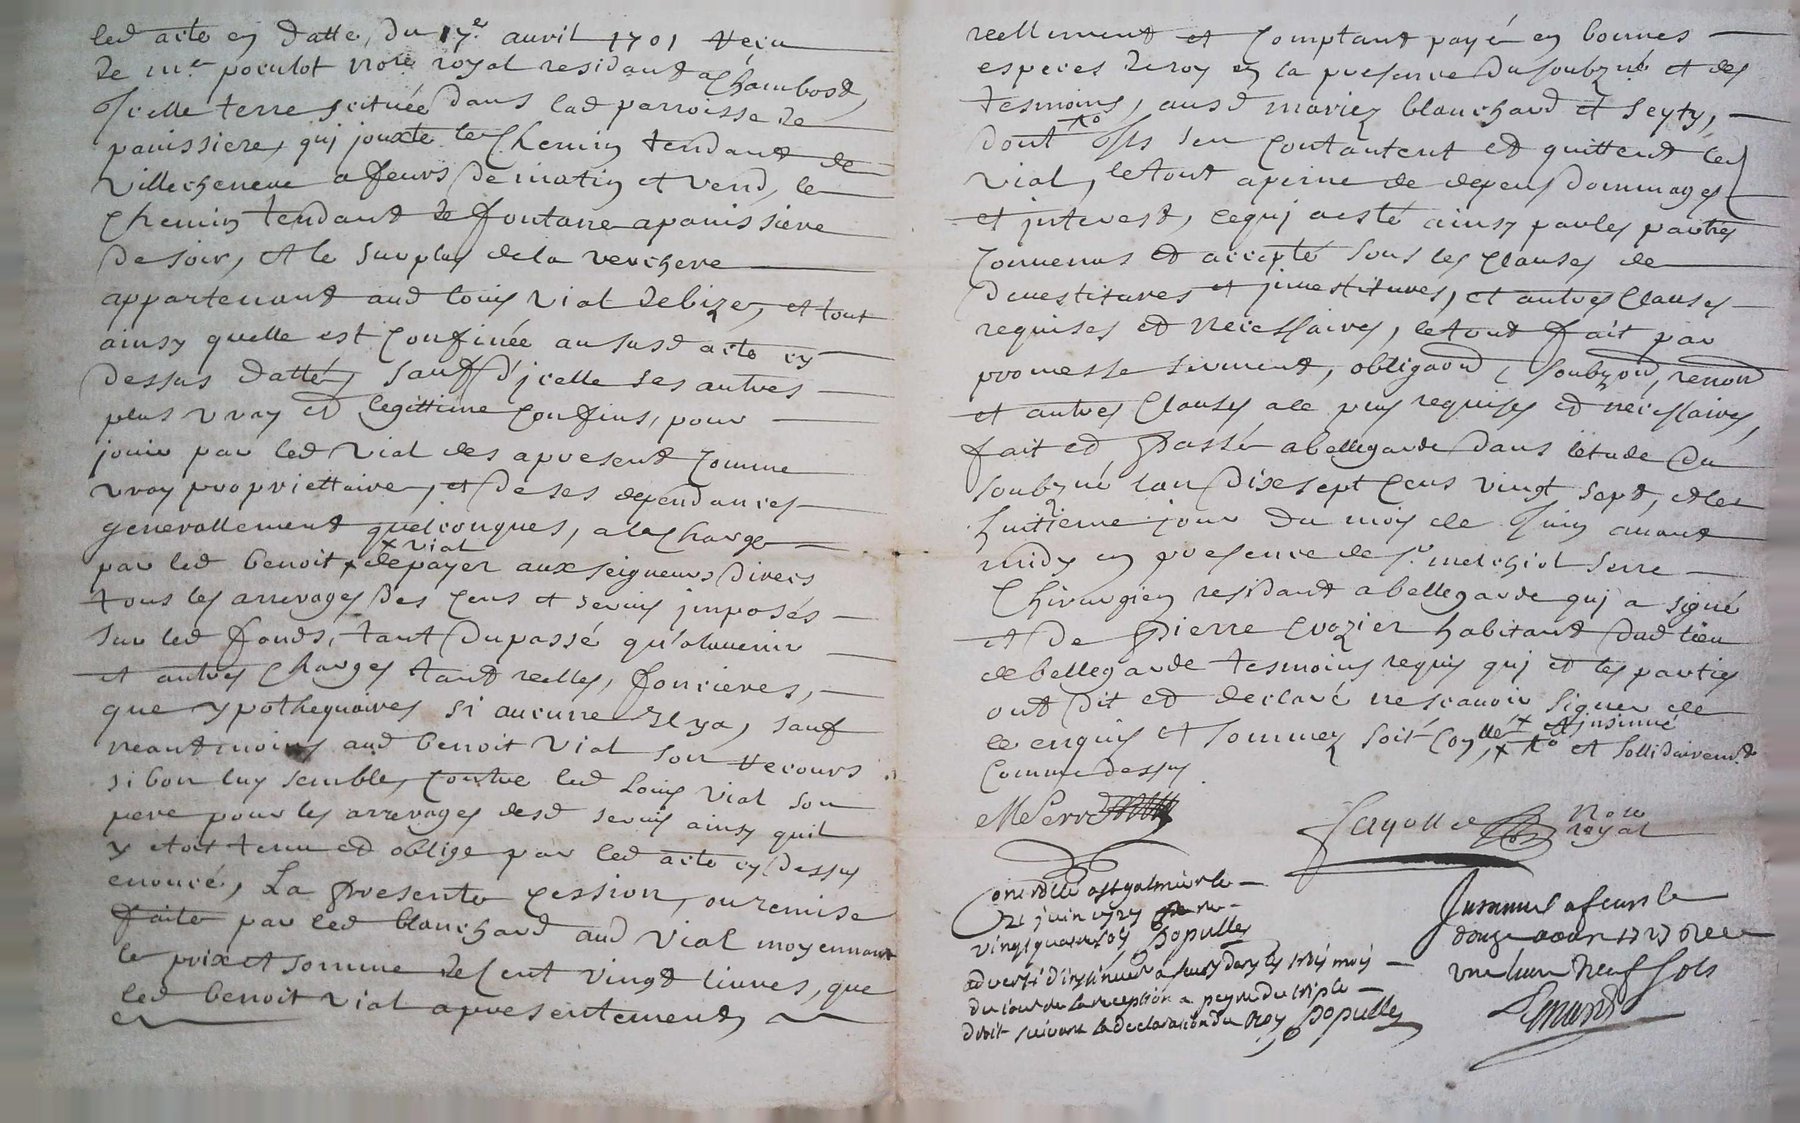 led acte en datte, du 17.e auril 1701 receu
de m.e poculot no.re royal residant a Chambost,
Icelle terre scituée dans lad parroisse de
panissiere, qui jouxte le Chemin tendant de
Villecheneue a feurs de matin et vend, le
Chemin tendant de fontane a panissiere
de soir, et le surplus de la verchere
appartenant aud louis Vial de bize, et tout
ainsy quelle est Confinée au susd acte cy
dessus datté, sauf d'jcelle ses autres
plus vray et legittime Confins, pour
jouir par led Vial des apresent Comme
vray propriettaire, et de ses dependances
generallement quelconques, a la Charge
par led benoit x vial x de payer aux seigneurs direcs
tous les arrerages des Cens et seruis jmposés
sur led fonds, tant du passé qu'alauenir
et autres Charges tant reelles, foncieres,
que ypothequaires si aucune Il ya, sauf
neantmoins aud benoit Vial son recours
si bon luy semble, Contre led Louis Vial son
pere pour les arrerages desd seruis ainsy quil
y etoit tenu et oblige par led acte cy dessus
enoncé, La presente Cession, ou remise
faite par led blanchard aud Vial moyennant
le prix et somme de Cent vingt liures, que
led benoit Vial apresentement
reellement et Comptant payé en bonnes
especes de roy en la presence du soubzné et des
tesmoins, ausd mariez blanchard et seyty,
dont Ils sen Contantent et quittent led
Vial, le tout a peine de depens dommages
et jnterest, ce qui a esté ainsy par les parties
Conuenus et accepté sous les Clauses de
deuestitures et jnuestitures, et autres Clauses
requises et necessaires, le tout fait par
promesse serment, obligaon, soubzon, renon
et autres Clauses a ce plus requises et necessaires,
fait et Passé a bellegarde dans letude du
soubzné lan dix sept Cens vingt sept, et le
huitieme jour du mois de Juin auant
midy en presence de s.r melchiol serre
Chirurgien residant a bellegarde qui a signé
et de Pierre Crozier habitant dud lieu
de bellegarde tesmoins requis qui et les parties
ont dit et declaré ne scauoir signer de
ce enquis et sommez soit Con.llé x et jnsinué x et sollidairem.t
Comme dessus
M Serre
Jayolle No.re royal
Controllé a st galmier le
21 juin 1727
vingt quatre sols Popullus
aduerti d'insinuer a feurs dans les trois mois
du iour de la reception a peyne du triple
droit suiuant la declaration du Roy Popullus
Insinué a feurs le
douze aoust 1727 Receu
une liure neuf sols